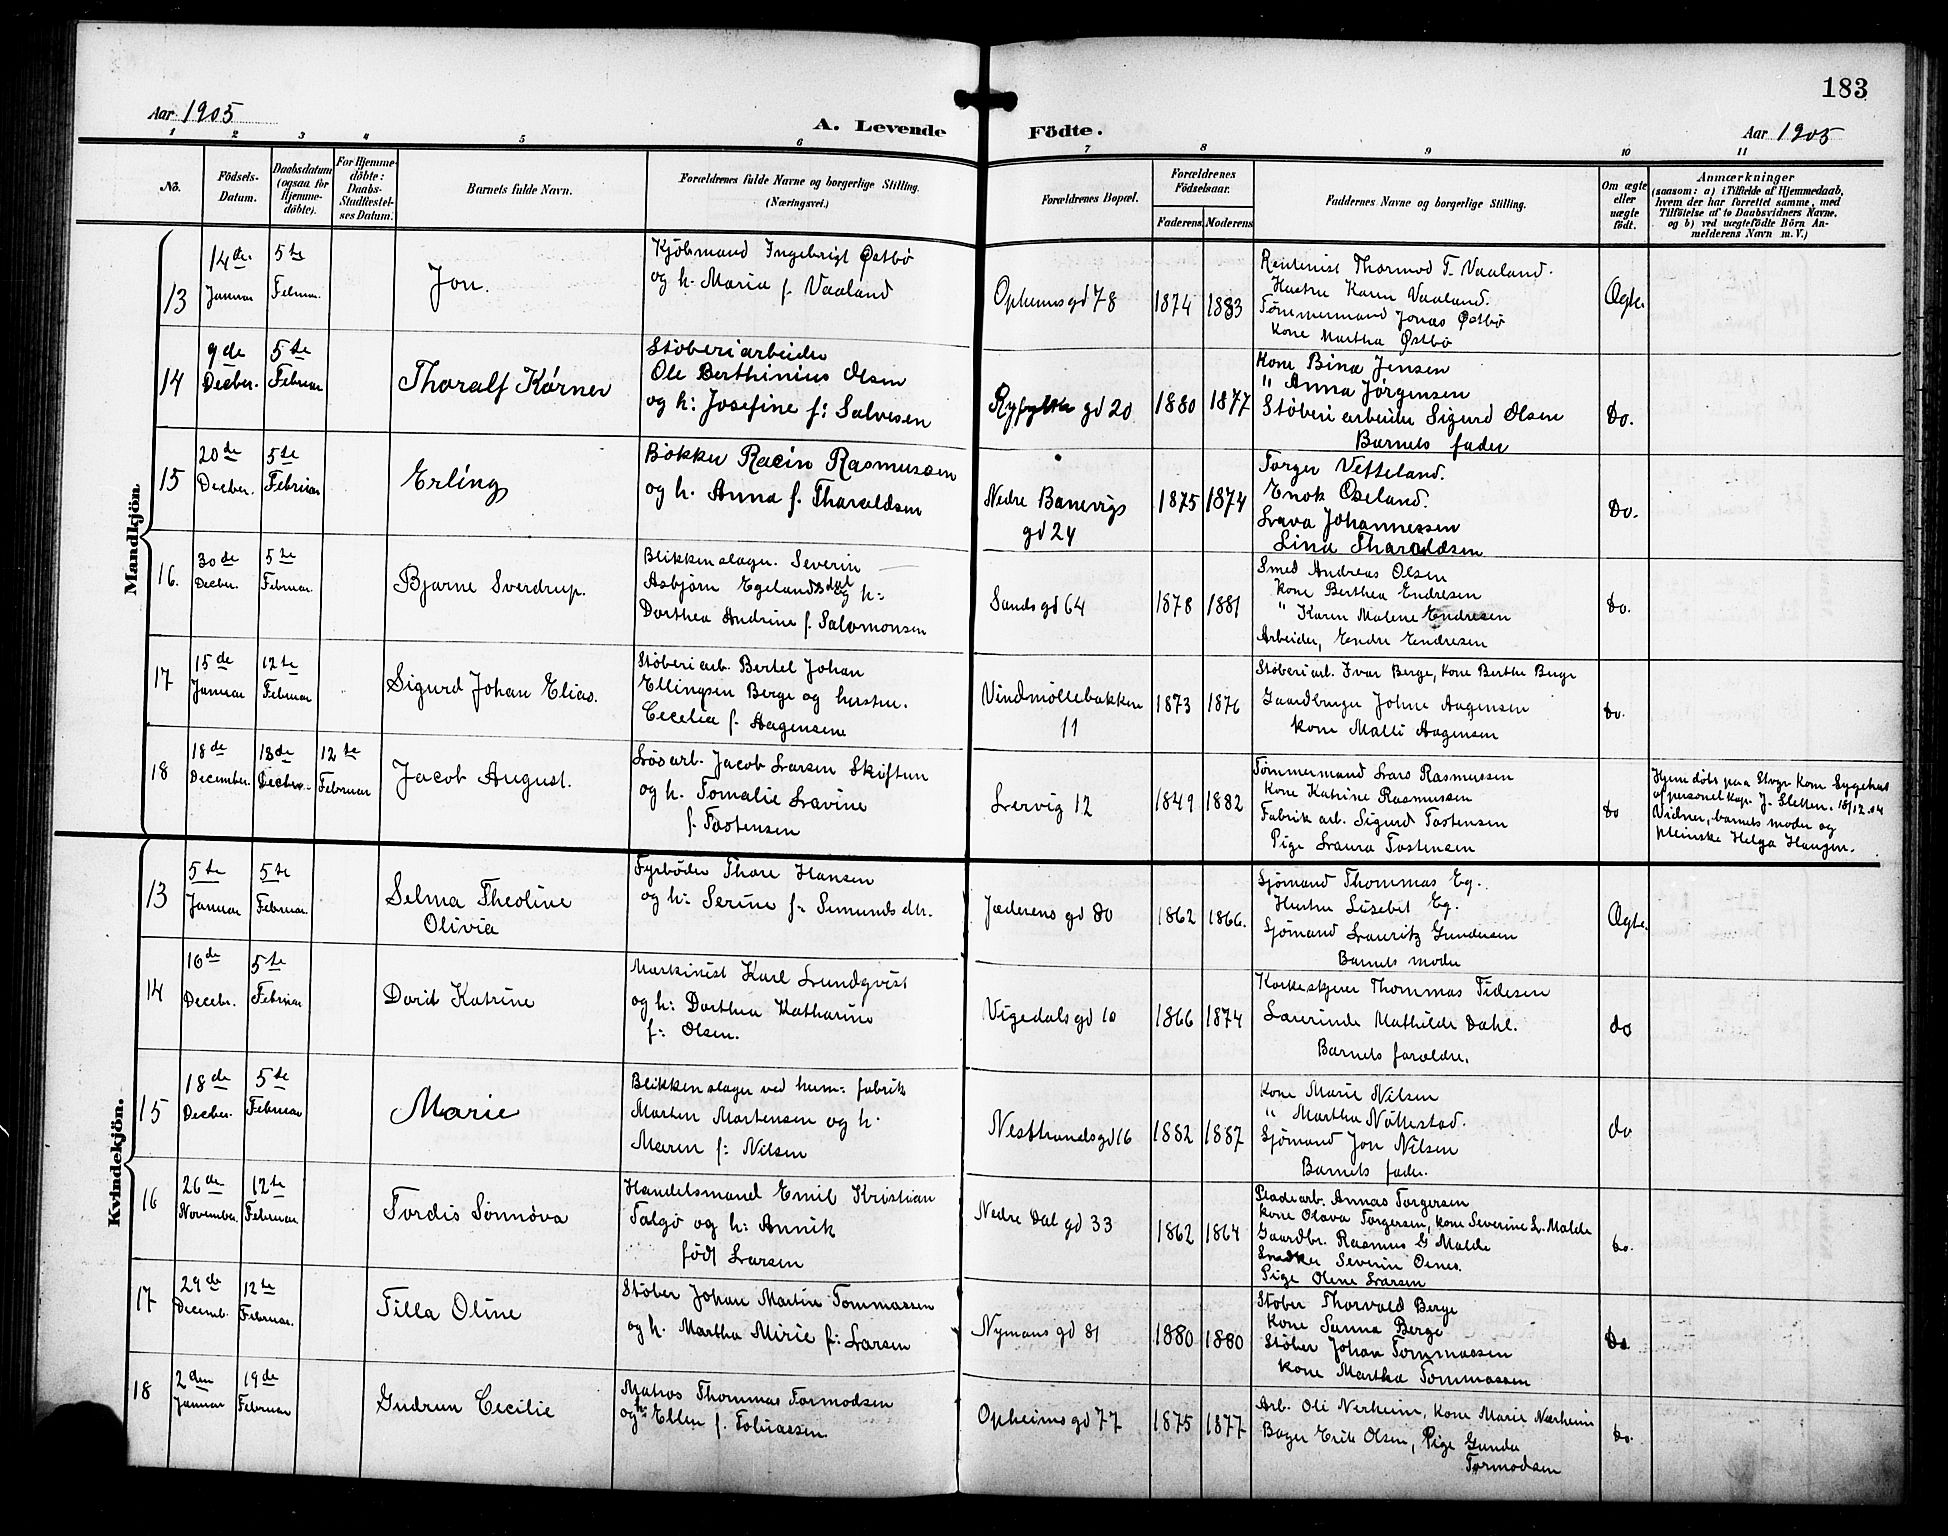 183
Aar 1905
A. Levende Födte.
Aar 1905
1 2 3 4 5 6 7 8 9 10 11
No.
Födsels-Datum.
Daabsdatum (ogsaa for Hjemme-döbte).
For Hjemme-döbte: Daabs-Stadfæstel-ses Datum.
Barnets fulde Navn.
Forældrenes fulde Navne og borgerlige Stilling. (Næringsvei.)
Forældrenes Bopæl.
Forældrenes Födselsaar.
Faderens Moderens
Faddernes Navne og borgerlige Stilling.
Om ægte eller uægte födt.
Anmærkninger
(saasom: a) i Tilfælde af Hjemmedaab, hvem der har forrettet samme, med Tilföielse af to Daabsvidners Navne, og b) ved uægtefödte Börn An-melderens Navn m. V.)
Mandkjön.
13
14de Januar
5te Februar
Jon.
Kjöbmand Ingebrigt Østbø
og h. Maria f. Vaaland
Opheimsgd 78
1874 1883
Rentenist Thormod T. Vaaland.
Hustru Karen Vaaland.
Tømmermand Jonas Østbø
Kone Martha Østbø
Ægte.
14
9de Decber.
5te Februar
Tharalf Kórner
Støberiarbeider
Ole Berthinius Olsen
og h: Josefine f: Salvesen
Ryfylke gd 20
1880 1877
Kone Bina Jensen
" Anna Jørgensen
Støberiarbeider Sigurd Olsen
Barnets fader
Do.
15
20de Decber.
5te Februar
Erling
Bøkker Racin Rasmussen
og h. Anna f. Tharaldsen
Nedre Banevigs
gd 24
1875 1874
Torger Vetteland.
Enok Oseland.
Lava Johannessen
Lina Tharaldsen
Do.
16.
30de Decber.
5te Februar.
Bjarne Sverdrup.
Blikkenslager. Severin
Asbjørn Egelandsdal og h:
Dorthea Andrine f. Salomonsen
Sandsgd 64
1878 1881
Smed Andreas Olsen
Kone Berthea Endresen
" Karen Malene Endresen
Arbeider, Endre Endresen
Do.
17
15de Januar
12te Februar
Sigurd Johan Elias.
Støberiarb. Bertel Johan
Ellingsen Berge og hustru.
Cecelia f. Aagensen
Vindmøllebakken
11
1873 1876
Støberiarb. Ivar Berge, Kone Berthe Berge
Gaardbruger Johne Aagensen
Kone Malli Aagensen
Do.
18
18de December.
18de Decbr.
12te Februar
Jacob August.
Løsarb. Jacob Larsen Skiftun
og h. Tomalie Lavine
f. Tostensen
Lervig 12
1849 1882
Tømmermand Lars Rasmussen
Kone Katrine Rasmussen
Fabrikarb. Sigurd Tostensen
Pige Laura Tostensen
Do
Hjemdøbt paa Stvgr Kom Sygehus
af personelkap. J. Sletten. 18/12.04
Vidner, barnets moder og
pleierske Helga Haugen.
Kvindekjön.
13
5te Januar
5te Februar
Selma Theoline
Olivia
Fyrbøder Thore Hansen
og h: Serine f: Simundsdtr.
Jæderens gd 80
1862 1866.
Sjømand Thommas Eg.
Hustru Lisebit Eg.
Sjømand Lauritz Gundersen
Barnets moder
Ægte.
14
16de Decebr.
5te Februar
Dorit Katrine
Maskinist Karl Lundqvist
og h: Dorthea Katharine
f: Olsen.
Vigedalsgd 10
1866 1874
Korkeskjerer Thommas Tidesen
Laurinde Mathilde Dahl.
Barnets foreldre.
do
15
18de Decber.
5te Februar
Marie
Blikkenslager ved herm: fabrik
Morten Mortensen og h.
Maren f: Nilsen
Nesttrandsgd 16
1882 1887
Kone Marie Nilsen
" Martha Nøttestad.
Sjømand Jon Nilsen
Barnets fader.
do
16
26de November.
12te Februar
Tordis Sønnøva
Handelsmand Emil Kristian
Talgø og h: Annik
født Larsen
Nedre Dal gd 33
1862 1864
Pladearb. Annas Torgersen
Kone Olava Torgersen, Kone Severine L. Malde
Gaardbr. Rasmus G Malde
Snedker Severin Oenes.
Pige Olene Larsen
do.
17
29de Decemb.
12te Februar.
Tilla Oline
Støber Johan Martin Tommassen
og h. Martha Mirie f: Larsen
Nymans gd 81
1880 1880
Støber Thorvald Berge
Kone Sanna Berge
Støber Johan Tommassen
Kone Martha Tommassen
Do
18
2den Januar
19de Februar
Gudrun Cecilie
Matros Thommas Tormodsen
og h: Ellen f. Tobiassen
Opheimsgd 77
1875 1877
Arb. Oli Nerheim, Kone Marie Nærheim
Bager Erik Olsen, Pige Gunda
Tormodsen
Do.